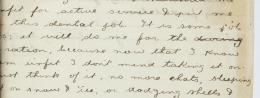 fit for active service & put me
this dental job. It is some job
; it will do me for the
ration, because now that I know
am unfit I don't mind taking it on.
ust think of it, no more chats, sleeping
on snow & ice, or dodging shells &